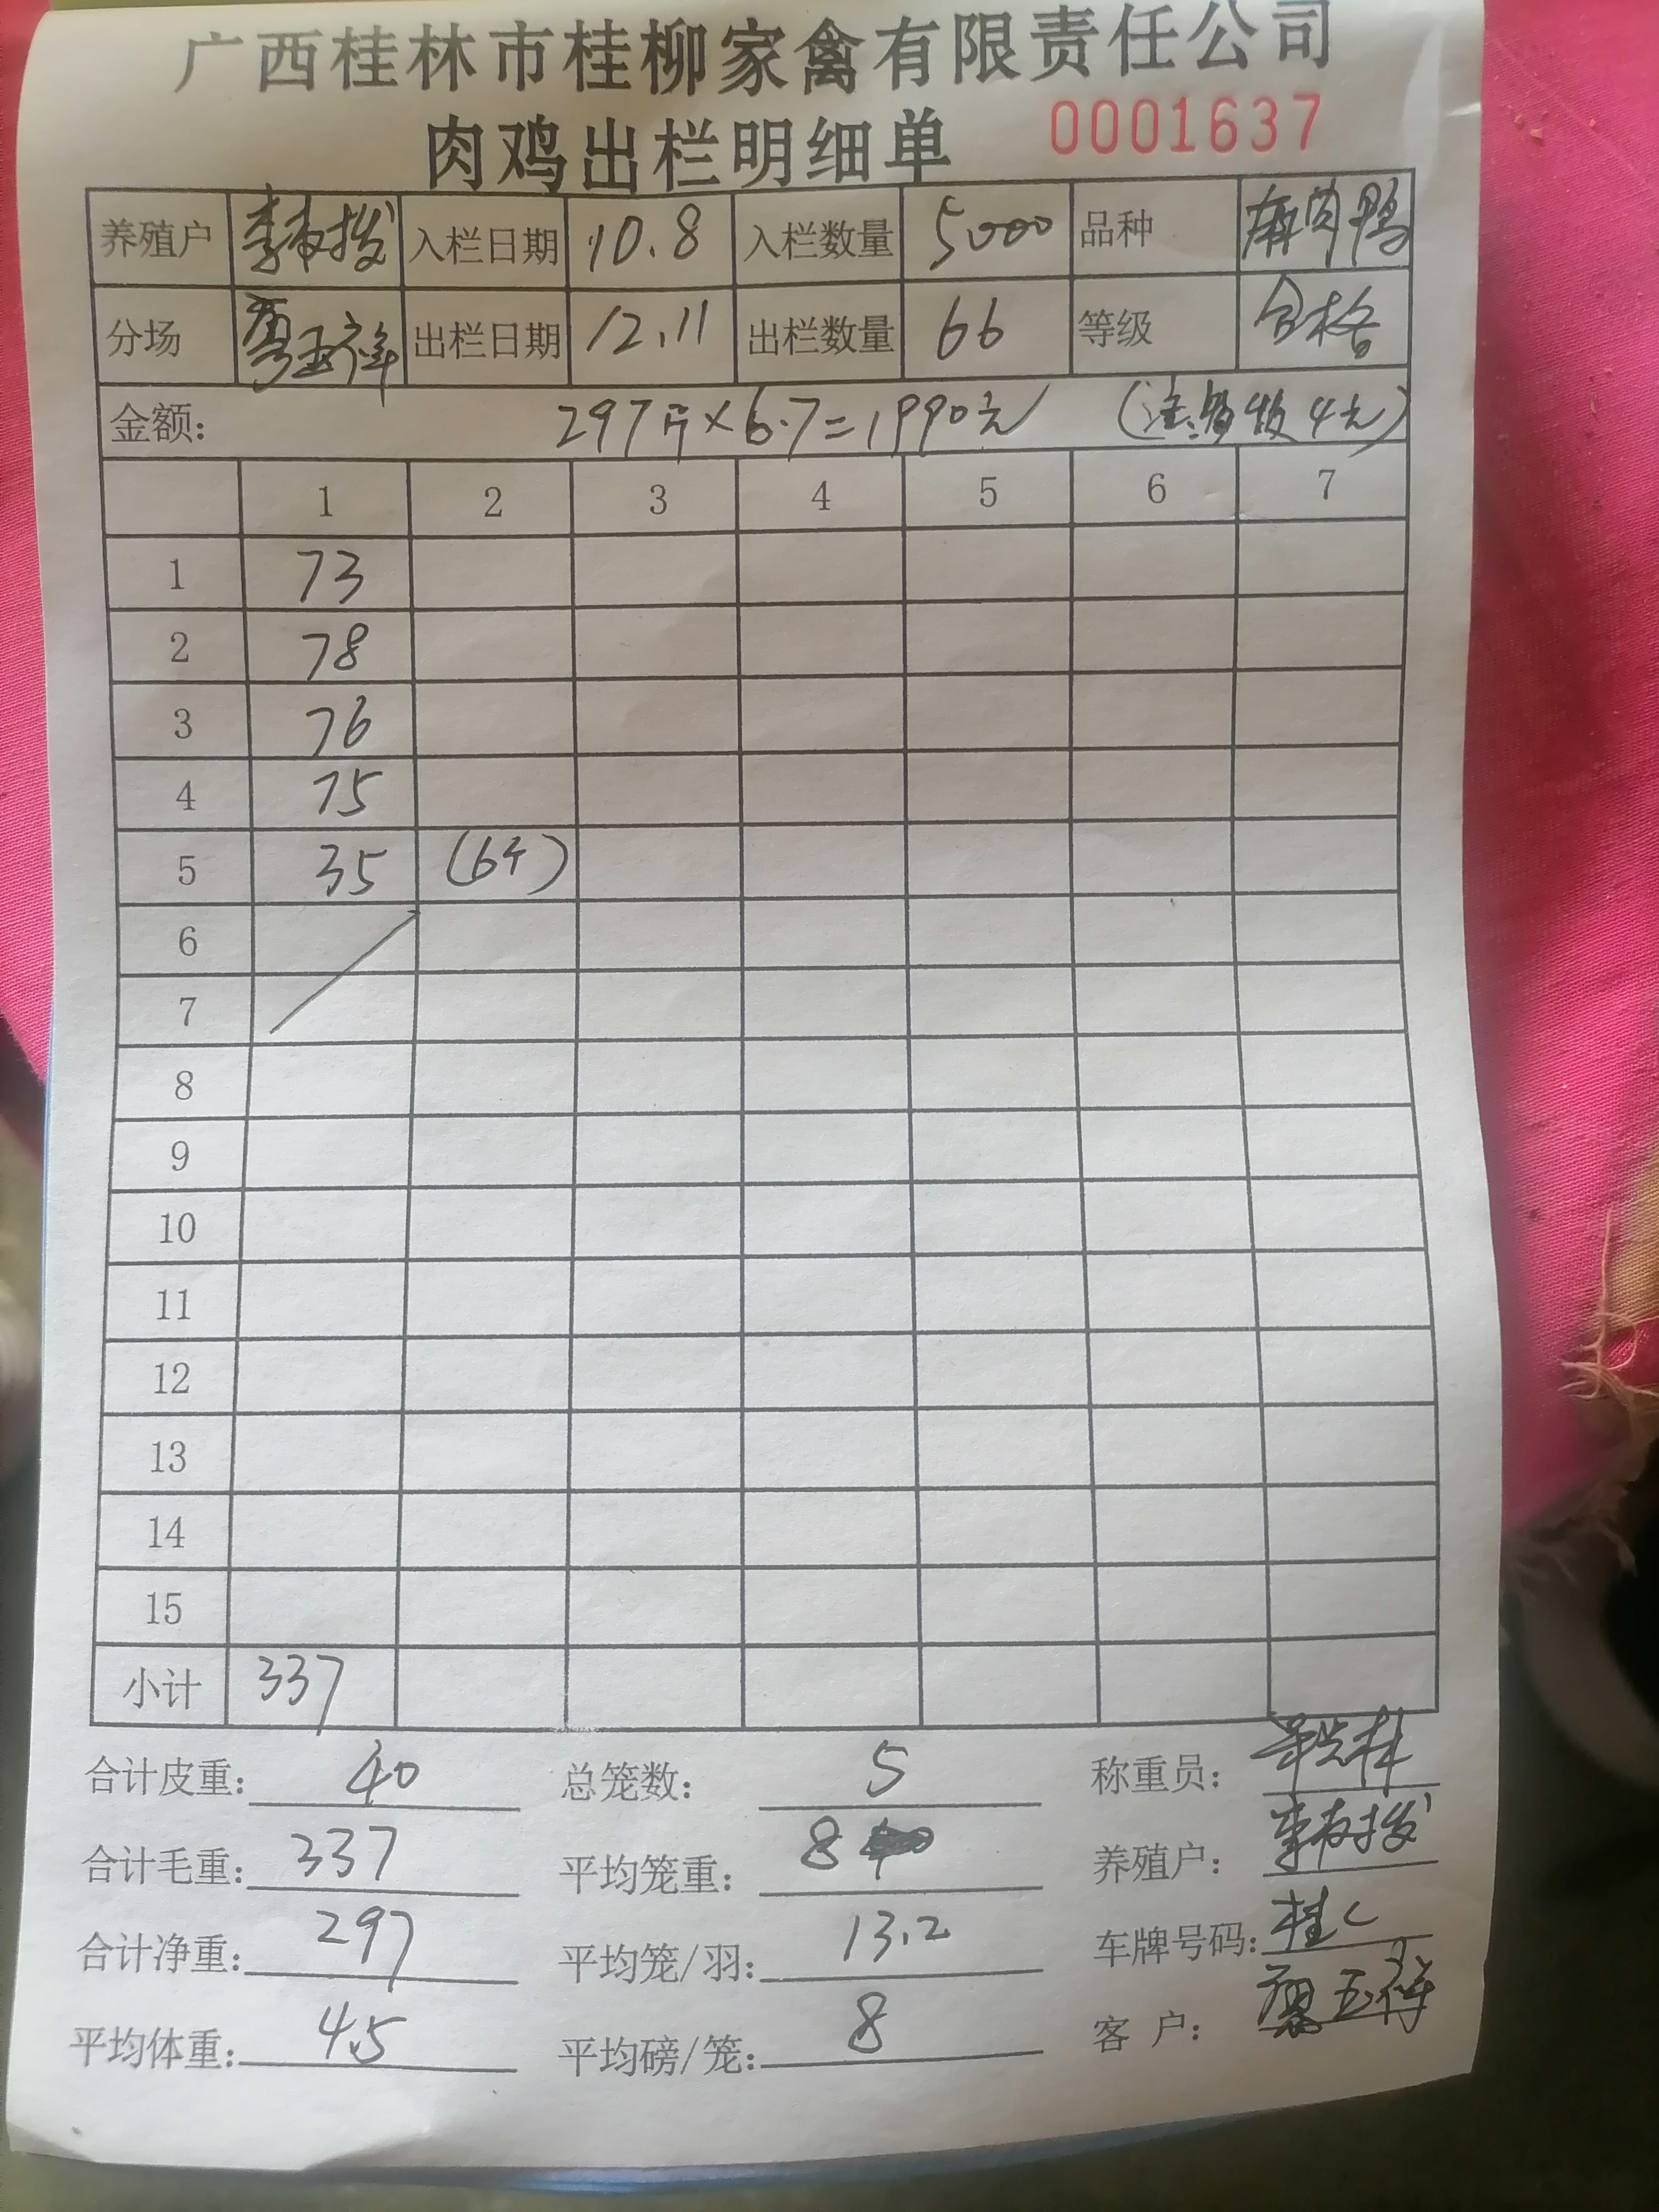 广西桂林市桂柳家禽有限责任公司
肉鸡出栏明细单 0001637
养殖户 入栏日期 10.8 入栏数量 5000 品种 麻肉鸭
分场 出栏日期 12.11 出栏数量 66 等级 合格
金额: 297斤×6.7=1990元 4元)
1 2 3 4 5 6 7
1 73
2 78
3 76
4 75
5 35 (6只)
6
7
8
9
10
11
12
13
14
15
小计 337
合计皮重: 40 总笼数: 5 称重员:
合计毛重: 337 平均笼重: 8 养殖户:
合计净重: 297 平均笼/羽: 13.2 车牌号码: 桂C
平均体重: 4.5 平均磅/笼: 8 客 户: